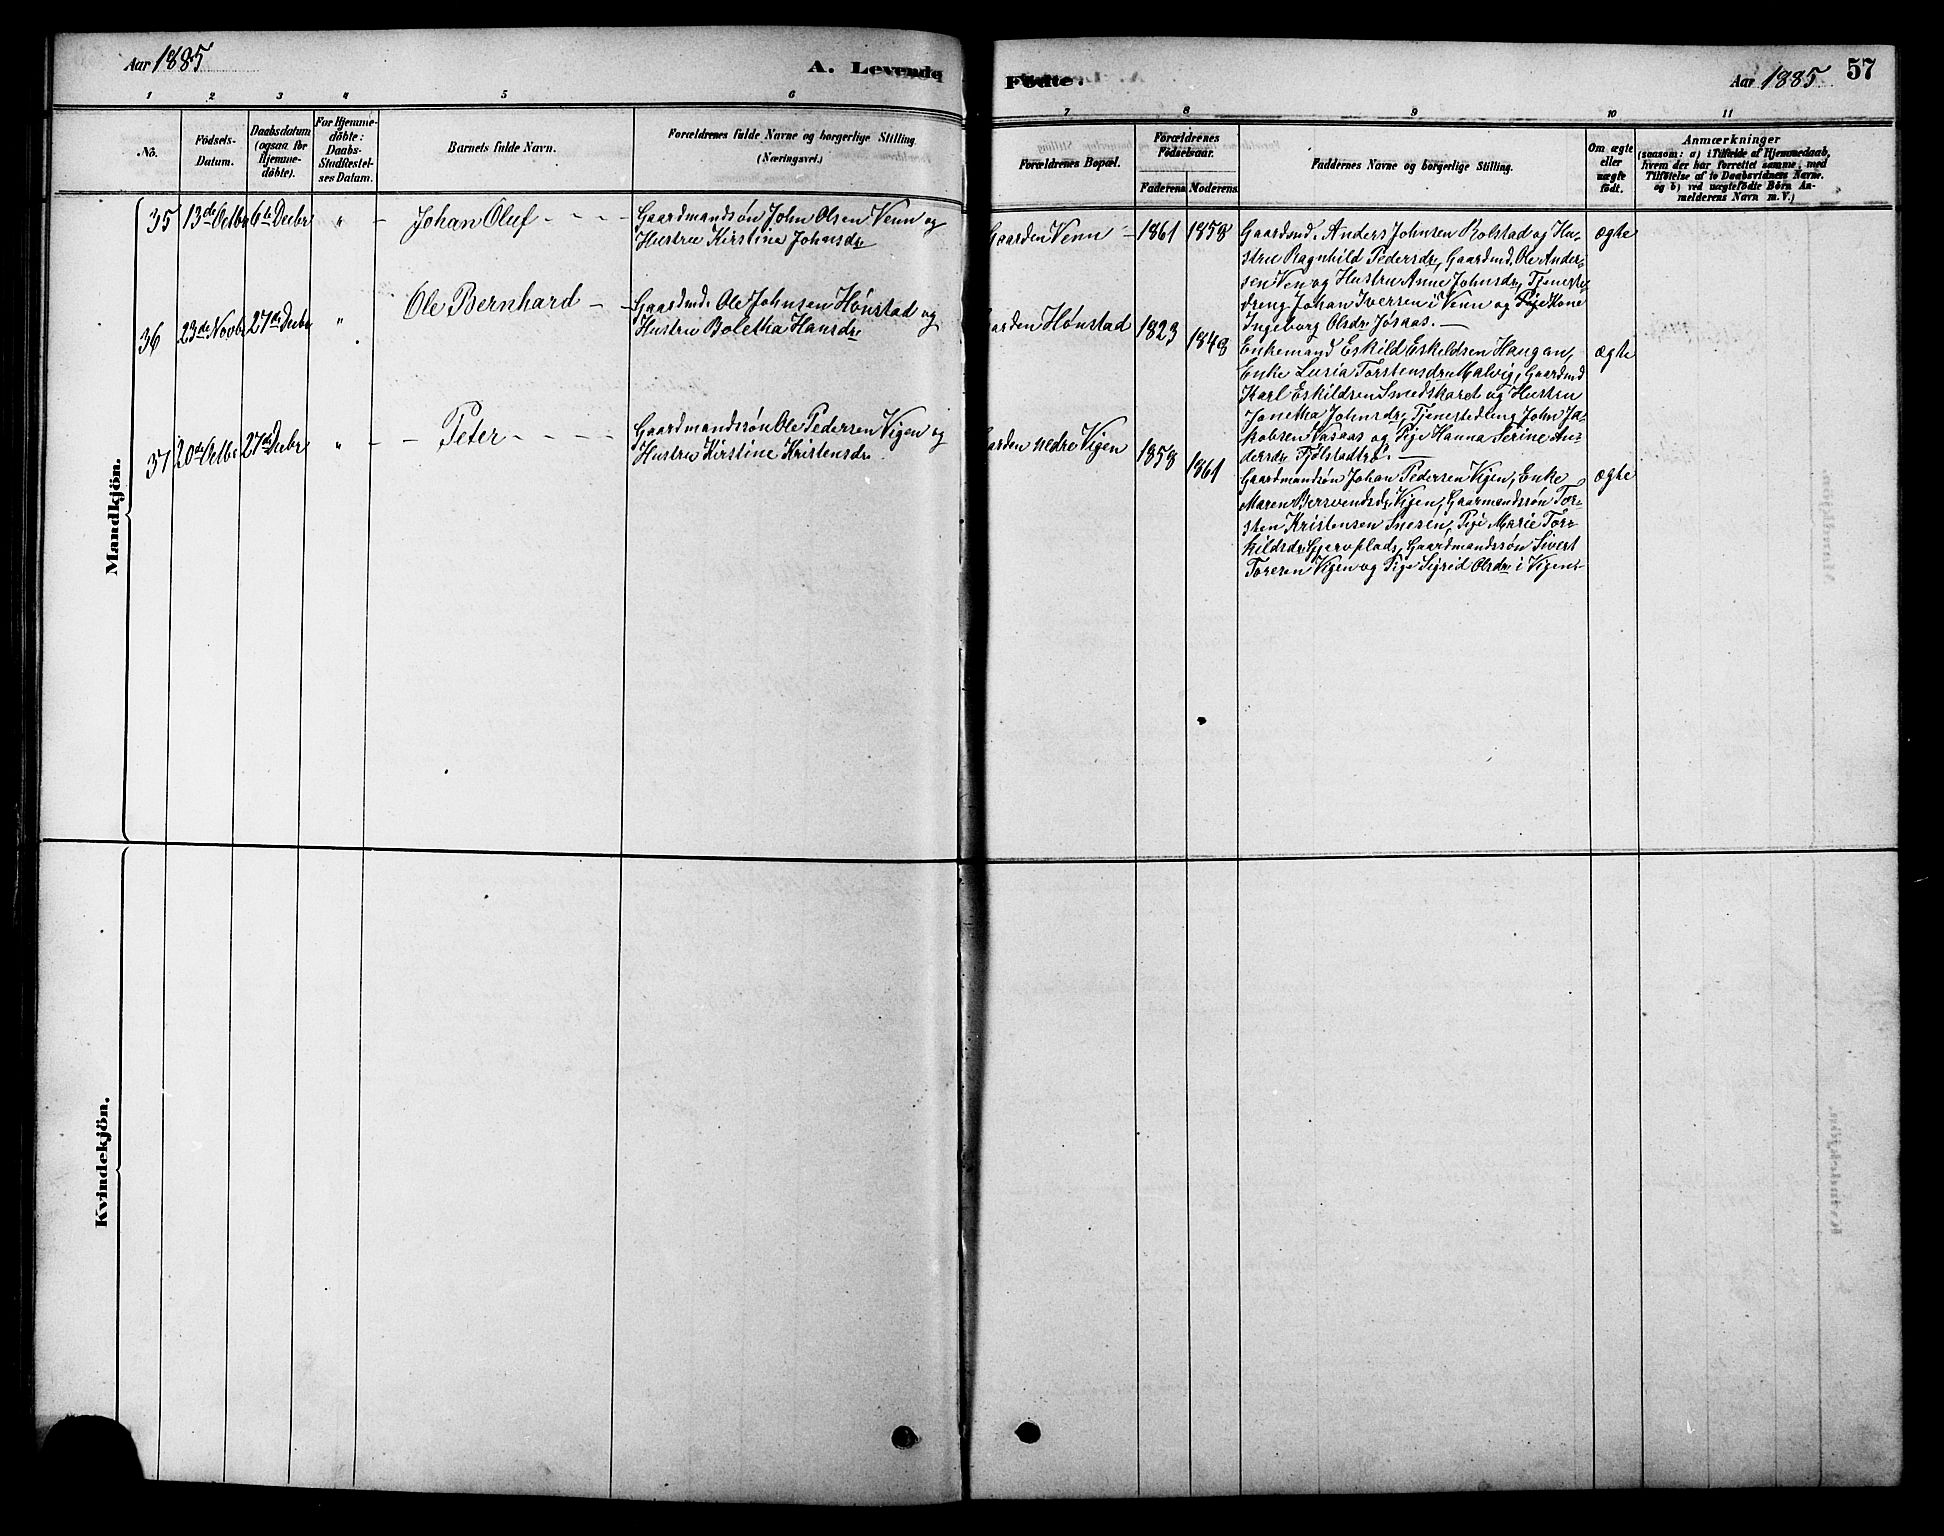 Aar 1885
A. Levende Fødte.
Aar 1885
57
1 2 3 4 5 6 7 8 9 10 11
No.
Födsels-
Datum.
Daabsdatum
(ogsaa for
Hjemme-
döbte).
For Hjemme-
döbte:
Daabs-
Stadfæstel-
ses Datum.
Barnets fulde Navn.
Forældrenes fulde Navne og borgerlige Stilling
(Næringsvei.)
Forældrenes Bopæl.
Forældrenes
Födselsaar.
Faderens Moderens
Faddernes Navne og borgerlige Stilling.
Om ægte
eller
uægte
födt.
Anmærkninger
(saasom: a) i Tilfælde af Hjemmedaab,
hvem der har forrettet samme, med
Tilföielse af to Daabsvidners Navne.
og b) ved uægtefödte Börn An-
melderens Navn m. V.)
Mandkjön.
35
13de Octbr
6te Decbr
"
Johan Oluf
Gaardmandsøn John Olsen Venn og
Hustru Kirstine Johnsdr
Gaarden Venn
1861
1858
Gaardmd. Anders Johnsen Rolstad og Hu-
stru Ragnhild Pedersdr, Gaardmd. Ole Ander-
sen Ven og Hustru Anne Johnsdr, Tjeneste-
dreng Johan Iversen i Venn og Pige Kone
Ingeborg Olsdr Jøsaas.
ægte
36
23de Novbr
27de Decbr
"
Ole Bernhard
Gaardmd. Ole Johnsen Hønstad og
Hustru Boletha Hansdr
Gaarden Hønstad
1823
1848
Enkemand Eskild Eskildsen Haugan,
Enke Lusia Torstensdr Malvig, Gaardmd
Karl Eskildsen Smedskaret og Hustru
Jonetha Johnsdr, Tjenestedreng John Ja-
kobsen Vasaas og Pige Hanna Serine An-
dersdr Fjølstadtrø.
ægte
37
20de Octbr
27de Decbr
"
Peter
Gaardmandssøn Ole Pedersen Vigen og
Hustru Kirstine Kristensdr.
Gaarden nedre Vigen
1858
1861
Gaardmandsøn Johan Pedersen Vigen, Enke
Maren Bersvendsdr Vigen, Gaarmandssøn Tor-
sten Kristensen Snesen, Pige Marie Tor-
kildsdr Gjervplads, Gaardmandssøn Sivert
Toresen Vigen og Pige Sigrid Olsdr i Vigen.
ægte
Kvindekjön.